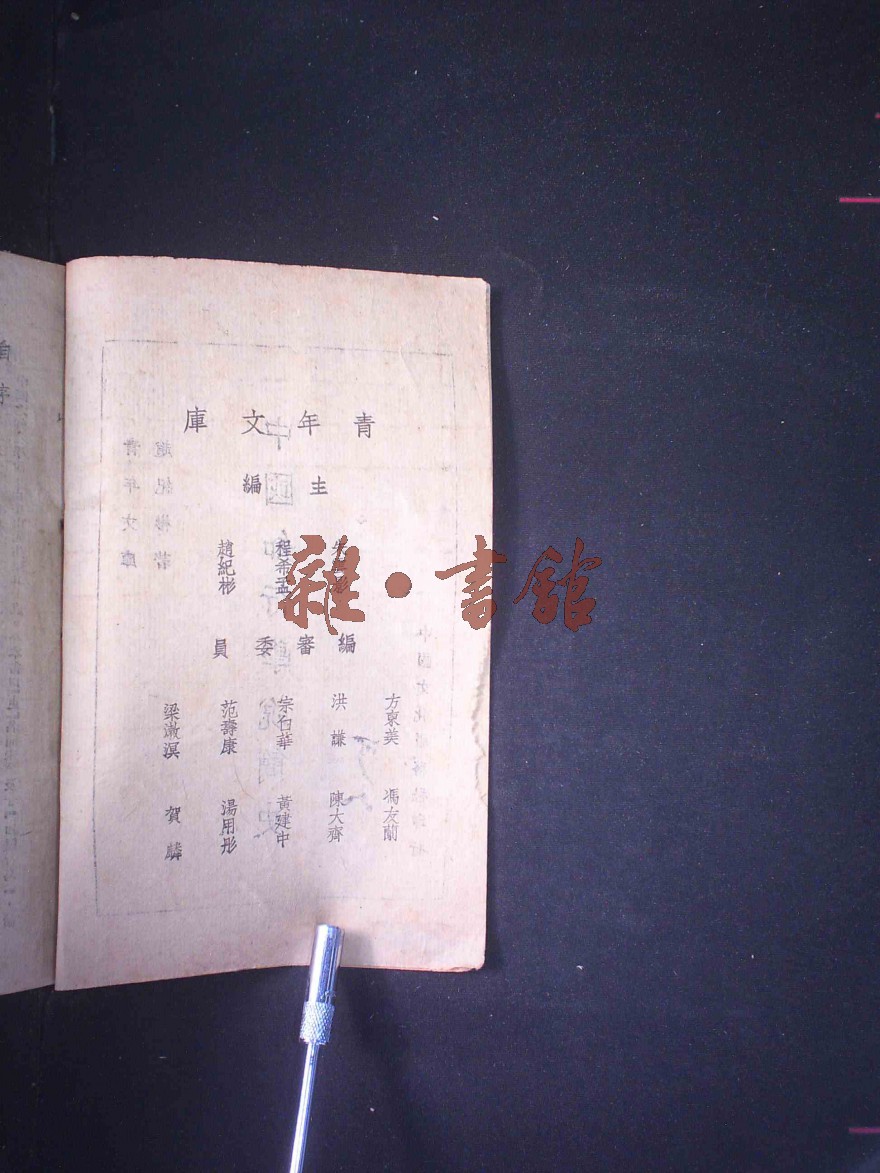 青年文庫
主編
程希孟
趙紀彬
編審委員
方東美
洪謙
宗白華
范壽康
梁漱溟
馮友蘭
陳大齊
黃建中
湯用彤
賀麟
雜·書館
自序